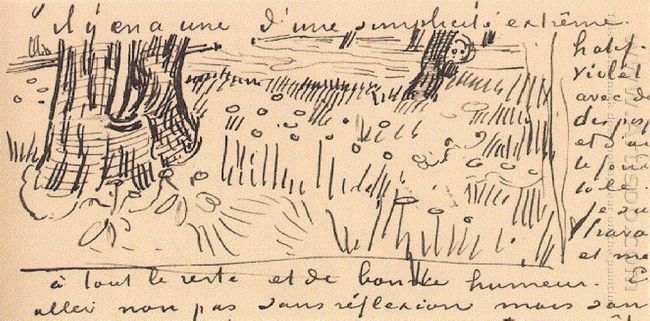 il y en a une d'une simplicité extrême.
violet
avec de
et
le fond
je su
trava
et me
à tout le reste et de bonne humeur. E
aller non pas sans réflexion mais san